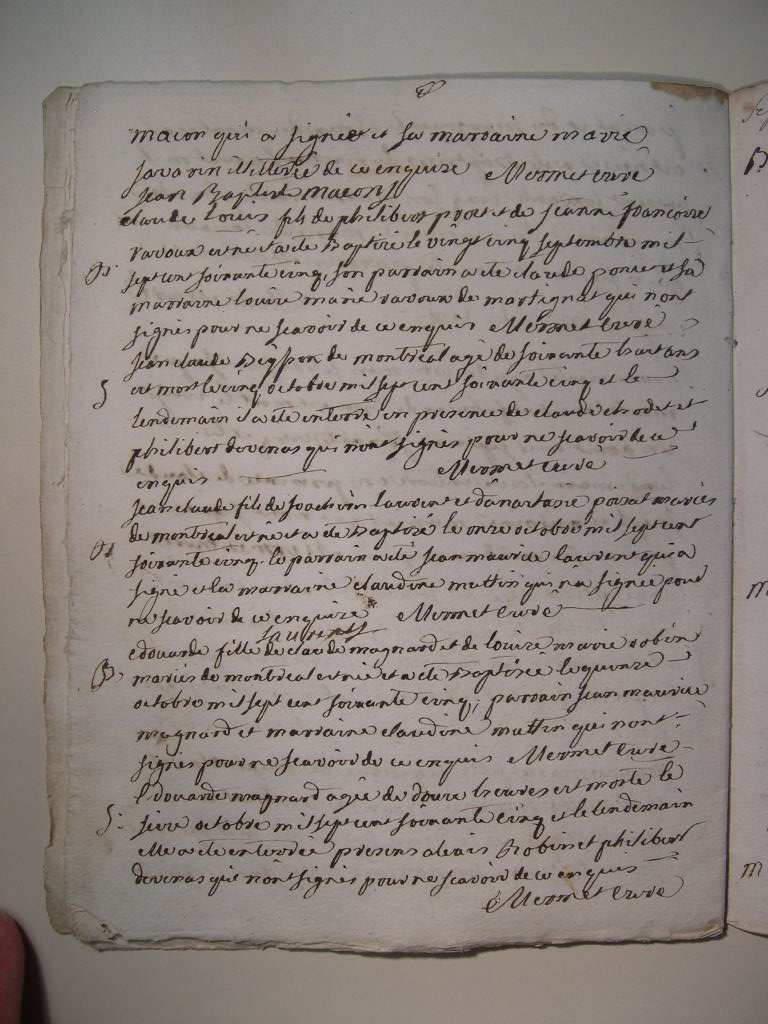 macon qui a signé et sa marraine marie
javarin illiterée de ce enquise Mermet curé
Jean Baptiste macon
claude Louis fils de philibert poret et de jeanne francoise
ravoux est né et a été Baptisé le vingt cinq septembre mil
B. sept cent soixante cinq, son parrain a été claude et sa
marraine louise marie ravoux de martignat qui n'ont
signés pour ne scavoir de ce enquis Mermet curé
jean claude de montreal agé de soixante huit ans
S est mort le cinq octobre mil sept cent soixante cinq et le
lendemain il a été enterré en presence de claude chodet et
philibert devenas qui n'ont signés pour ne scavoir de ce
enquis Mermet curé
jean claude fils de joachim laurent et d'anastasie poizat mariés
de montreal est né et a été Baptisé le onze octobre mil sept cent
B soixante cinq. le parrain a été jean maurice laurent qui a
signé et la marraine claudine muttin qui n'a signée pour
ne scavoir de ce enquise Mermet curé
laurent
edouarde fille de claude magnard et de louise marie robin
B. mariés de montreal est née et a été Baptisée le quinze
octobre mil sept cent soixante cinq, parrain jean maurice
magnard et marraine claudine muttin qui n'ont
signés pour ne scavoir de ce enquis Mermet curé
Edouarde magnard agée de douze heures est morte le
S. seize octobre mil sept cent soixante cinq et le lendemain
elle a été enterrée presens alexis Robin et philibert
devenas qui n'ont signés pour ne scavoir de ce enquis
Mermet curé